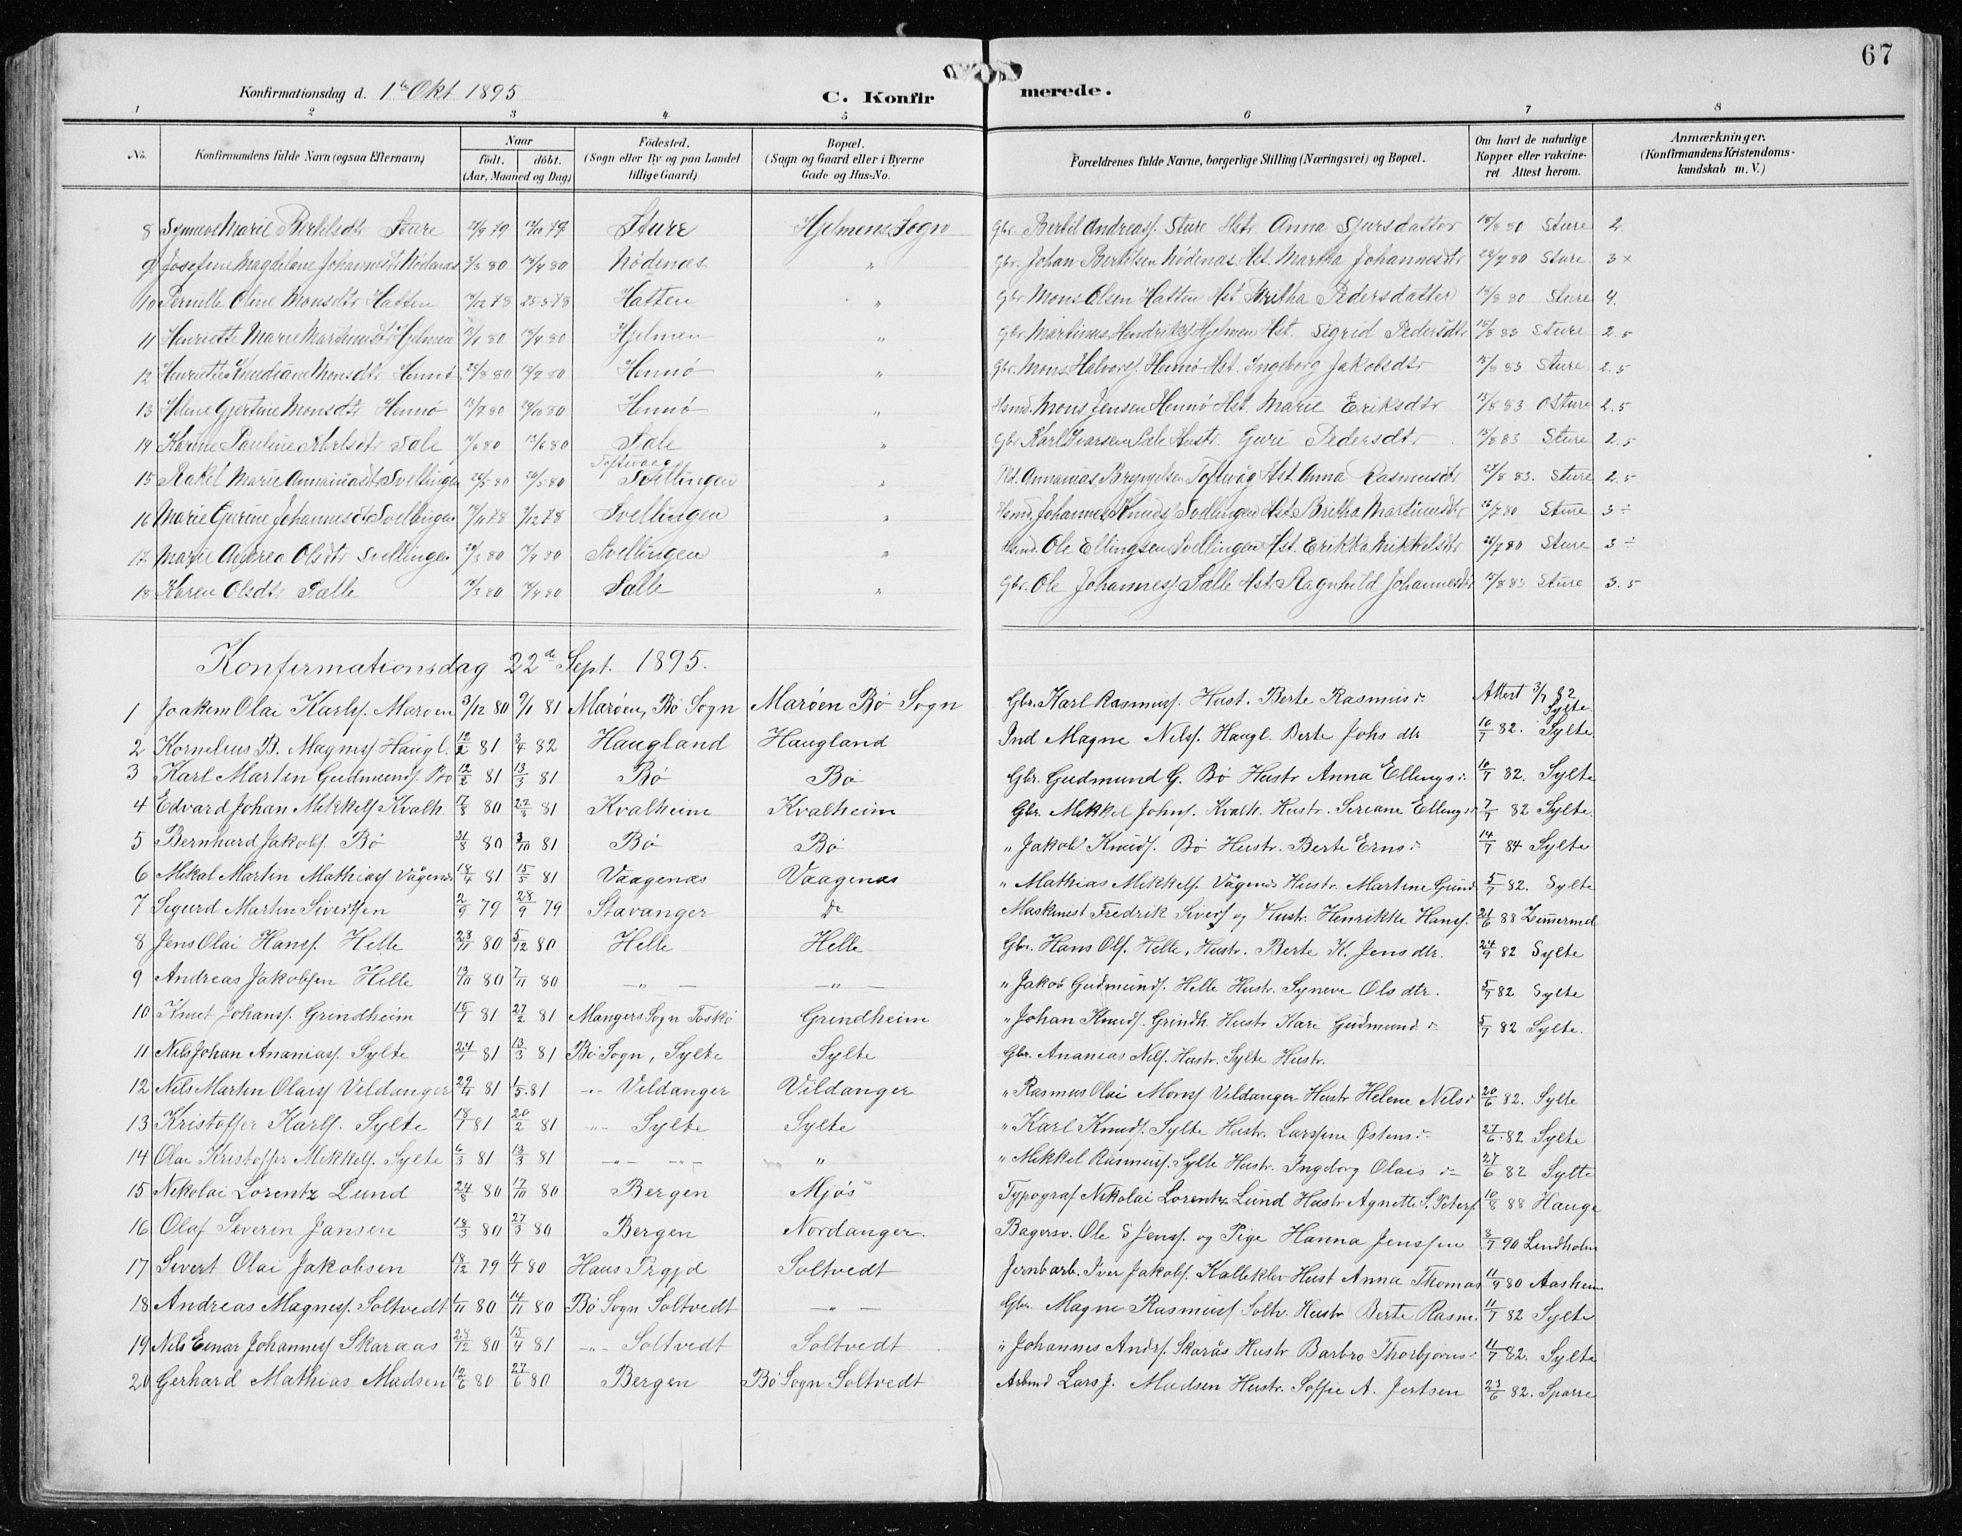 67
Konfirmationsdag d. 1te Okt 1895 C. Konfirmerede.
1 2 3 4 5 6 7 8
No. Konfirmandens fulde Navn (ogsaa Efternavn) Naar født. døbt. (Aar, Maaned og Dag) Fødested. (Sogn eller By og paa Landet tillige Gaard) Bopæl. (Sogn og Gaard eller i Byerne Gade og Hus-No. Forældrenes fulde Navne, borgerlige Stilling (Næringsvei) og Bopæl. Om havt de naturlige Kopper eller vakcineret. Attest herom. Anmærkninger. (Konfirmandens Kristendomskundskab m. V.)
8 Synneve Marie Bertilsdtr Sture Sture Hjelmens Sogn Gbr. Bertil Andreasf. Sture Hstr Anna Sjursdatter 15/8 80 Sture 2
9 Josefine Magdelane Johannesdtr Nødenæs Nødenæs " Gbr. Johan Bertilsen Nødenæs Hst. Martha Johannesdtr Sture 3+
10 Pernille Oline Monsdtr Hatten Hatten " Gbr Mons Olsen Hatten Hst Britha Pedersdatter 15/8 80 Sture 4.
11 Henriette Marie Martinusdtr Hjelmen Hjelmen " Gbr Martinus Hendriksf Hjelmen Hst. Sigrid Pedersdtr 15/8 83 Sture 2.5
12 Henriette Knudiane Monsdtr Hennø Hennø " Gbr. Mons Halvorsf. Hennø Hst. Ingeborg Jakobsdtr 15/8 83 Sture 2.5
13 Helene Gjertine Monsdtr Hennø Hennø " Hsmd. Mons Jensen Hennø Hst. Marie Eriksdtr 15/8 83 Sture 2.5
14 Karine Pauline Karlsdtr Sale Sale " Gbr Karl Ivarsen Sale Hustr. Guri Pedersdtr 15/8 83 Sture 2.5
15 Rakel Marie Annaniasdtr Svellingen Toftevaag Svellingen " Annanias Brynjelsen Toftevåg Hst Anna Rasmusdtr 83. Sture 2.5
16 Marie Gurine Johannesdtr Svellingen Svellingen " Hsmd. Johannes Knudsf Svellingen Hst. Britha Martinusdtr Sture 3÷
17 Marie Andrea Olsdtr Svellingen Svellingen " Hsmd. Ole Ellingsen Svellingen Hst. Erikka Mikkelsdtr Sture 3÷
18 Karen Olsdtr Sælle Salle " Gbr. Ole Johannesf. Salle Hst Ragnhild Johannesdtr 15/8 83 Sture 3.5
Konfirmationsdag 22de Sept. 1895.
1 Joakim Olai Karlsf. Marøen 3/12 80 9/1 81 Marøen, Bø Sogn Marøen Bø Sogn Gbr. Karl Rasmusf. Hust. Berte Rasmusd: Attest 3/7 82 Sylte.
2 Kornelius B. Magnusf Haugl. 12/2 81 3/4 82 Haugland Haugland Ind Magne Nilsf. Haugl. Berte Johs dtr 10/7 82. Sylte
3 Karl Martin Gudmundsf. Bø 12/2 81 13/3 81 Bø Bø Gbr. Gudmund G. Bø Hustr Anna Ellingsd: 10/7 82. Sylte
4 Edvard Johan Mikkelsf Kvalh. 17/8 80 22/8 81 Kvalheim Kvalheim Gbr. Mikkel Johnsf. Kvalh. Hustr. Seriane Ellingsd 7/7 82 Sylte.
5 Bernhard Jakobsf. Bø 31/8 80 3/10 81 Bø Bø " Jakob Knudsf. Bø Hustr. Berte Ernsd: 14/7 84 Sylte
6 Mikal Martin Mathiasf Vågenæs 18/4 81 15/5 81 Vaagenæs Vaagenæs " Mathias Mikkelsf. Vågenæs Hustr. Martine Gund. 5/7 82. Sylte
7 Sigurd Martin Sivertsen 2/9 79 28/9 79 Stavanger do Maskinist Fredrik Siversf og Hustr. Henrikke Hansf. 24/6 88 Zimermd
8 Jens Olai Hansf. Helle 28/11 80 5/12 80 Helle Helle Gbr. Hans Olsf. Helle, Hustr. Berte K. Jens dtr. 24/9 82 Sylte
9 Andreas Jakobsen Helle 19/10 80 7/11 80 —"— —"— " Jakob Gudmundsf. Helle Hustr Syneve Ols dtr. 5/7 82 Sylte
10 Knut Johansf. Grindheim 15/1 81 27/2 81 Mangers Sogn Toskø Grindheim " Johan Knudsf. Grindh. Hustr Kari Gudmund d: 5/7 82 Sylte.
11 Nils Johan Ananiasf. Sylte 24/1 81 13/3 81 Bø Sogn, Sylte Sylte Gbr. Ananias Nilsf. Hustr. Sylte Hustr.
12 Nils Martin Olaisf Vildanger 29/4 81 1/5 81 -"- Vildanger Vildanger " Rasmus Olai Monsf Vildanger Hustr Helene Nilsd 20/6 82. Sylte
13 Kristoffer Karlsf. Sylte 18/1 81 20/2 81 -"- Sylte Sylte " Karl Knudsf. Sylte Hustr. Larssine Østensd: 27/6 82 Sylte
14 Olai Kristoffer Mikkelsf. Sylte 6/3 81 13/3 81 -"- -"- " " Mikkel Rasmusf. Sylte Hustr. Ingeborg Olais d: 27/6 82 Sylte
15 Nikolai Lorentz Lund 24/8 80 17/10 80 Bergen Mjøs Typograf Nikolai Lorentz Lund Hustr Agnette S. Petersf 10/8 88 Hauge
16 Olaf Severin Jansen 18/3 80 27/3 80 Bergen Nordanger. Bagersv. Ole S Jensf. og Pige Hanna Jenssen 3/7 90 Lindholm
17 Sivert Olai Jakobsen 18/12 79 4/1 80 Haus Prgjd Soltvedt Jernbarb. Iver Jakobsf. Kalleklev Hust Anna Thomas 11/9 80 Aasheim
18 Andreas Magnesf. Soltvedt 1/11 80 14/11 80 Bø Sogn Soltvedt —"— Gbr. Magne Rasmusf Soltv. Hustr Berte Rasm. 11/7 82 Sylte
19 Nils Einar Johannesf Skaraas 28/12 80 15/4 81 -"- Soltvedt Soltvedt " Johannes Andrsf. Skarås Hustr Barbro Thorbjørns: 11/7 82. Sylte
20 Gerhard Mathias Madsen 12/6 80 27/6 80 Bergen Bø Sogn Soltvedt Arbmd Lars J. Madsen Hustr. Soffie A. Jertsen 23/6 82. Sparre